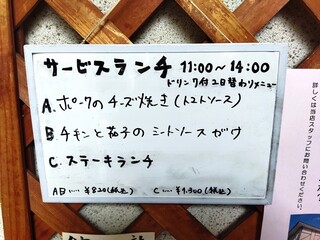 サービスランチ 11:00〜14:00
ドリンク付 2日替わりメニュー
A. ポークのチーズ焼き(トマトソース)
B. チキンと茄子のミートソースがけ
C. ステーキランチ
AB…… ¥820(税込) C…… ¥1,300(税込)
詳しくは当店
スタッフにお問
い合わせください。